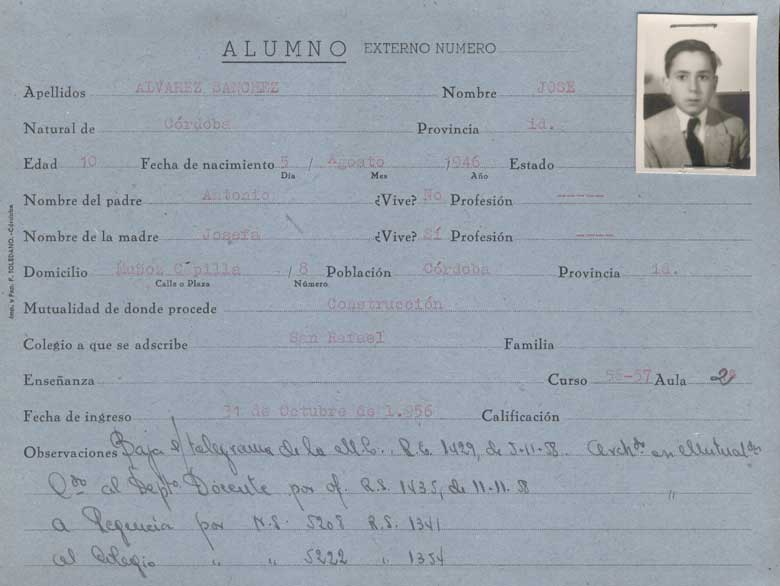 ALUMNO EXTERNO NUMERO
Apellidos ALVAREZ SANCHEZ Nombre JOSE
Natural de Córdoba Provincia id.
Edad 10 Fecha de nacimiento 5 / Agosto /1946 Estado
Día Mes Año
Nombre del padre Antonio ¿Vive? No Profesión -----
Nombre de la madre Josefa ¿Vive? Sí Profesión ----
Domicilio Muñoz Capilla / 8 Población Córdoba Provincia id.
Calle o Plaza Número
Mutualidad de donde procede Construcción
Colegio a que se adscribe San Rafael Familia
Enseñanza Curso 56-57 Aula 2ª
Fecha de ingreso 31 de Octubre de 1.956 Calificación
Observaciones Baja s/ telegrama de la M.L. R.E. 1429, de 5-11-58. en Mutual
al Deptº Docente por of. R.S. 1435, de 11-11-58 "
a Regencia por N.S. 5208 R.S. 1341
al Colegio " " 5222 " 1354
Imp. y Pap. F. TOLEDANO.-Córdoba